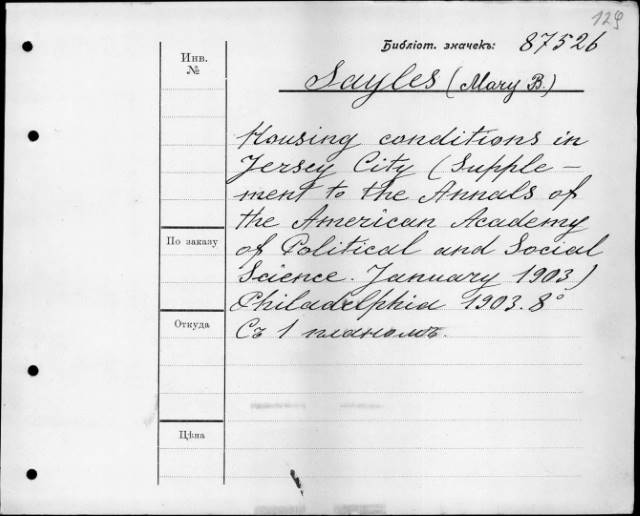 129
Библіот. значекъ: 87526
Инв.
№
Sayles (Mary B.)
Housing conditions in
Jersey City (Supple-
ment to the Annals of
the American Academy
По заказу
of Political and Social
Science. January 1903)
Philadelphia 1903. 8°
Откуда
Съ 1 планомъ.
Цѣна